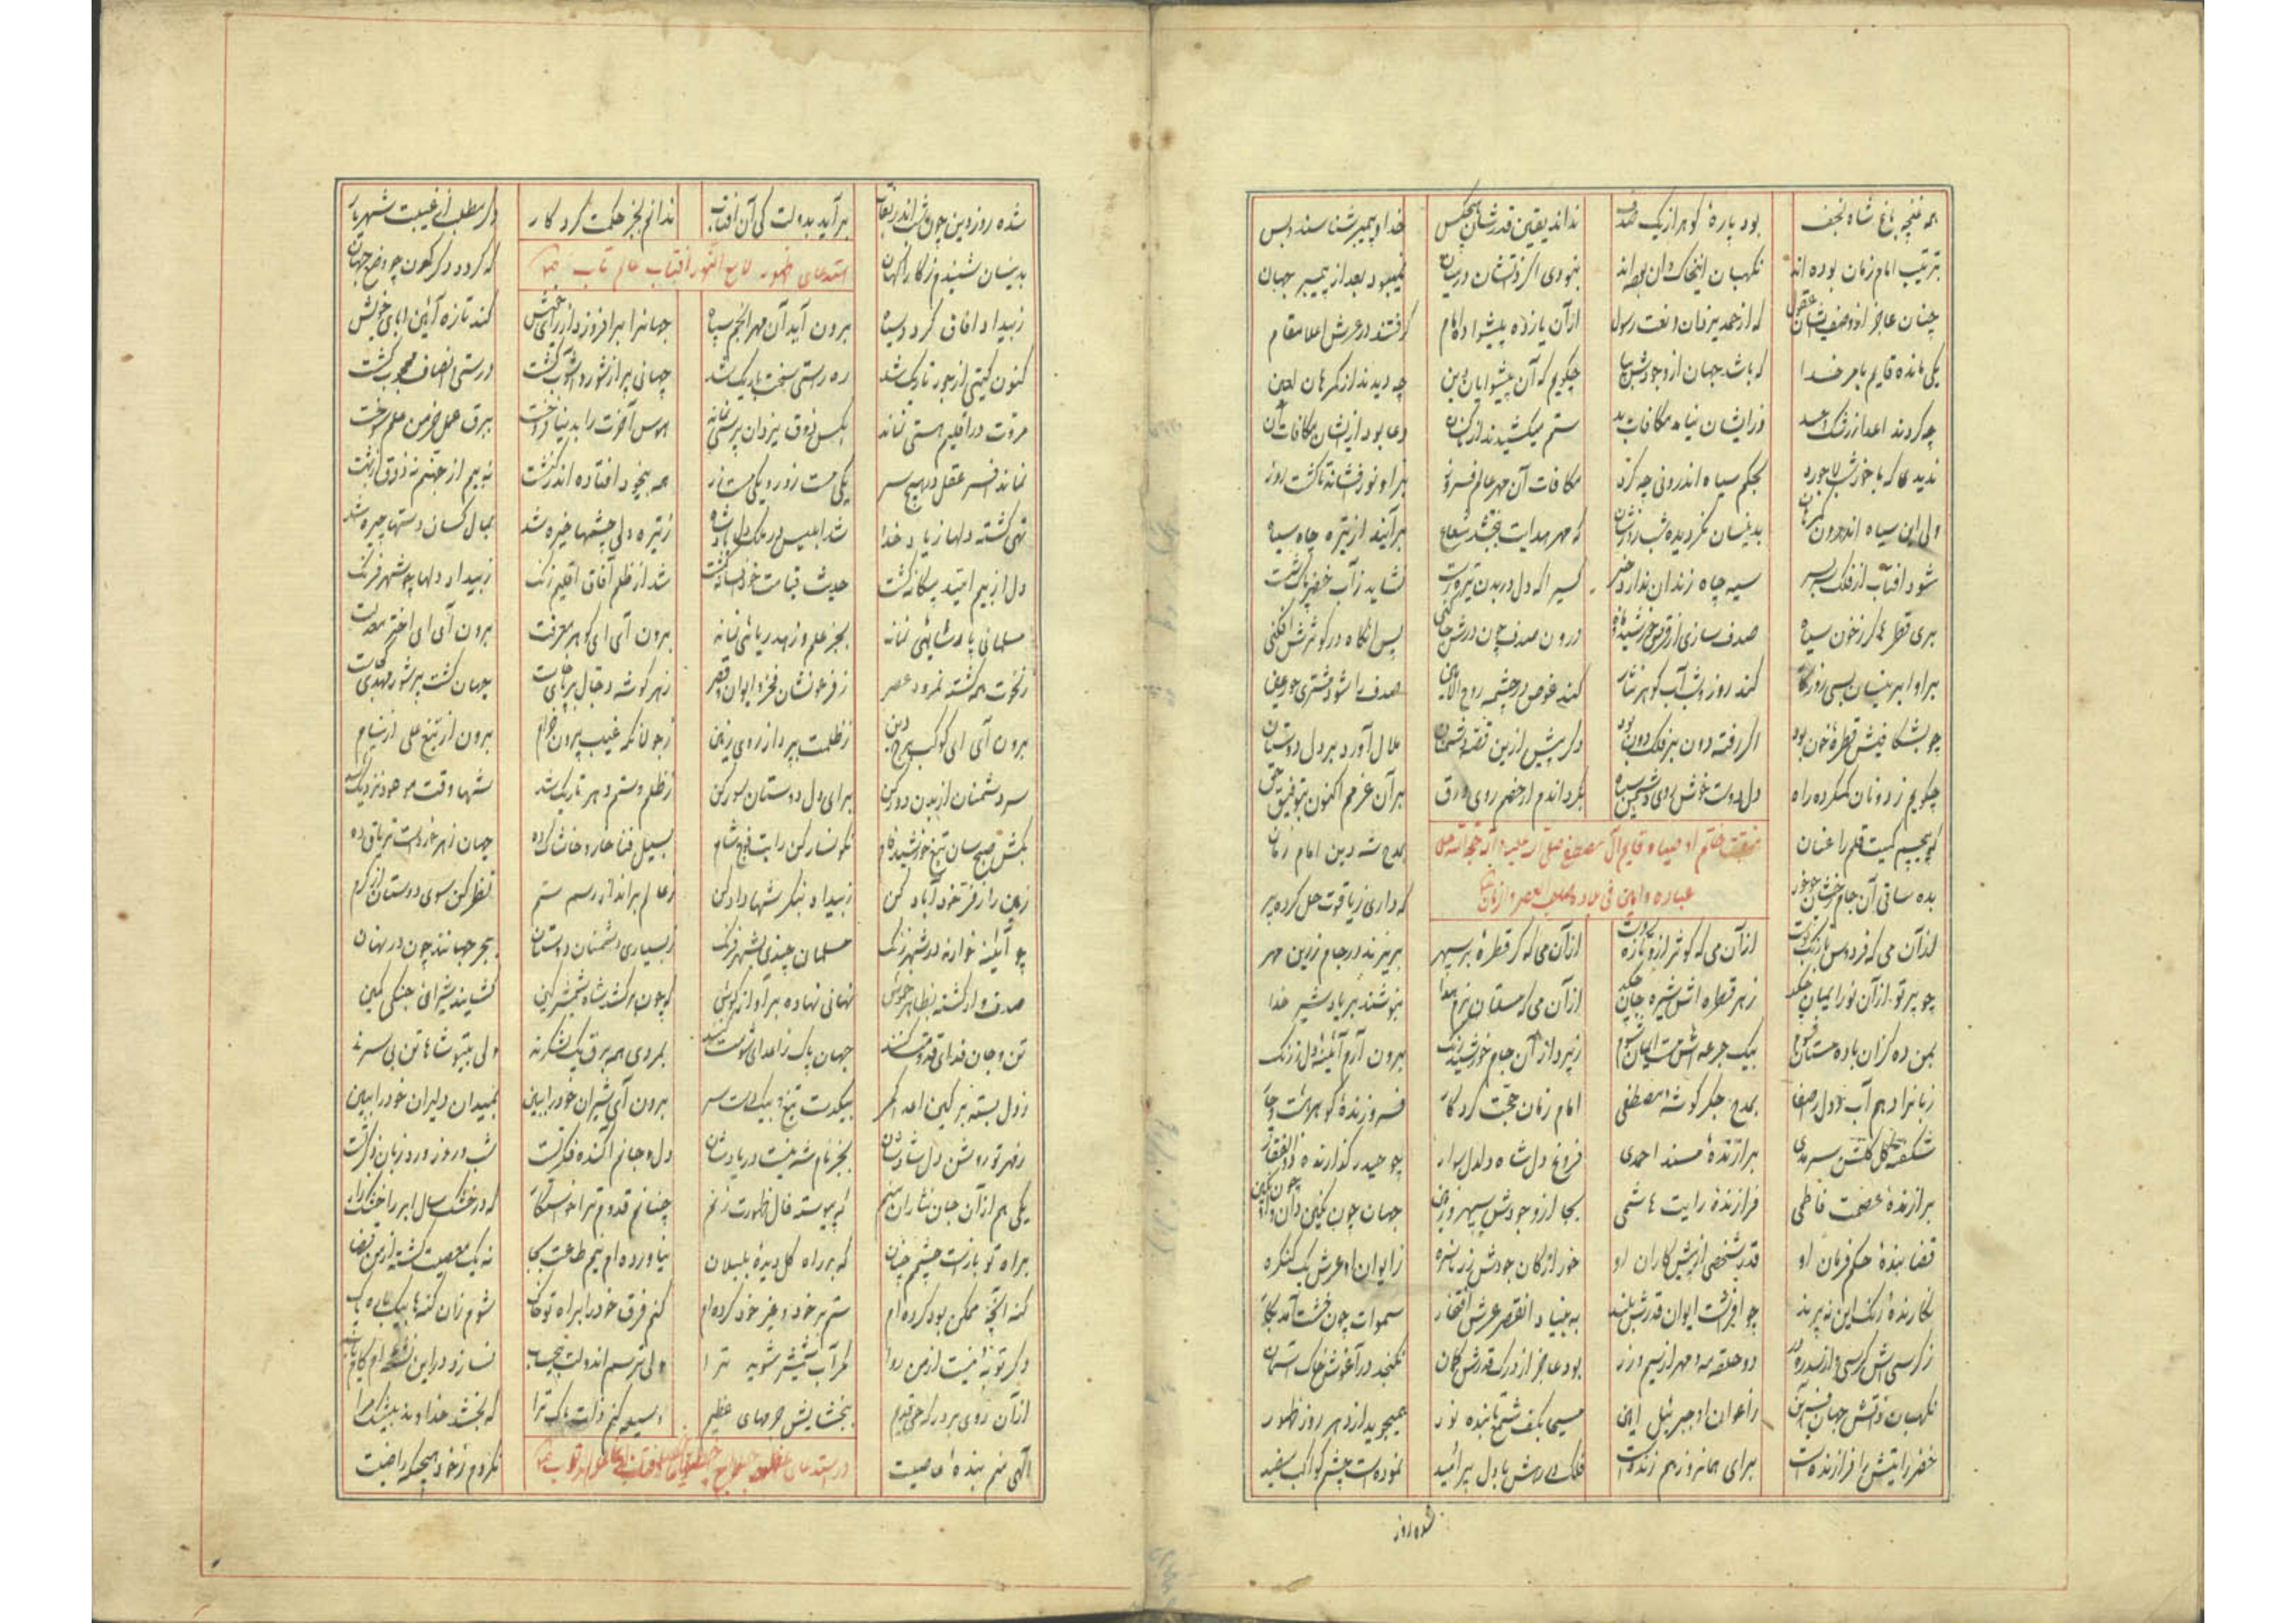 همه غنچه باغ شاه نجف بود پاره گوهر از یک صدف نداند یقین قدرشان هیچکس خدا و پیمبر شناسند و بس
بترتیب امام زمان بوده اند نکهبان این خاکدان بوده اند نبودی اگر ذاتشان در میان نمیبود بعد از پیمبر جهان
چنان عاجز از وصفشان عقول که از حمد یزدان و نعت رسول از آن یازده پیشوا و امام گرفتند در عرش اعلا مقام
یکی مانده قایم بامر خدا که باشد جهان از وجودش بپا چگویم که آن پیشوایان دین چه دیدند از گمرهان لعین
چه کردند اعدا ز رشک و حسد وز ایشان نیامد مکافات بد ستم میکشیدند از دعا بود از ایشان مکافات آن
ندیدی که با خورشید بحکم سیاه اندرونی چه کرد مکافات آن مهر عالم فروز بر او نور فشانه تا گشت روز
ولی این سیاه اندرون بدینسان نگردیده شب روزشان که مهر هدایت ببخشد شعاع برآیند از تیره چاه سیاه
شود آفتاب از فلک سیه چاه زندان ندارد کسیرا که دل در بدن تیره است نشاید ز آب خضر پاک شست
بری قطره گر ز خون سیاه صدف سازی از قرص خورشید و ماه درون صدف چون درش جا کنی پس آنگاه در کوثرش افکنی
بر او ابر نیسان بسی روزگار کند روز و شب آب گوهر نثار کند غوص در چشمه روح الامین صدف را شود مشتری حور عین
چو بشکافیش قطره خون بود اگر رفته دون بر فلک دون بود دگر پیش ازین قصه دشمنان ملال آورد بر دل دوستان
چگویم ز دونان گمکرده راه دل دوست خوش روی دشمن سیاه بگردانم از خصم روی ورق بر آن عزمم اکنون بتوفیق حق
که پیچم کمیت قلم را عنان بمدح شه دین امام زمان
منقبت خاتم اوصیا و قایم آل مصطفی صلی الله علیه و آله حجة الله علی
عباده و امین فی بلاده صاحب العصر و الزمان
بده ساقی آن جام که داری ز یاقوت حل کرده پر
از آن می که فردوس از آن می که کوثر ازو تازه روست از آن می که گر قطره بر سپهر بریزند در جام زرین مهر
چو پرتو از آن نور ایمان چکد ز هر قطره اش شیره جان چکد از آن می که مستان بنوشند بر یاد شیر خدا
بمن ده کزان باده مستان شوم بیک جرعه اش مست ایمان شوم بپرداز از آن جام برون آرم آئینه دل ز زنگ
زبانرا دهم آب و دل را صفا بمدح جگر گوشه مصطفی امام زمان حجت کردگار فروزنده گوهر
شکفته گل گلشن سرمدی برازنده مسند احمدی فروغ دل شاه دلدل سوار چو حیدر گذارنده ذوالفقار
برازنده عصمت فاطمی فرازنده رایت هاشمی بجا از وجودش سپهر و زمین جهان چون نگین دان و او چون نگین
قضا بنده حکم فرمان او قدر شخصی از پیشکاران او خور از کان جودش زر ناسره ز ایوان او عرش یک کنگره
نگارنده زنک این نه پرند چو افراشت ایوان قدرش بلند به بنیاد آن قصر عرش افتخار سموات چون خشت آمد بکار
ز کرسیش کرسی و از سدره در دو حلقه مه و مهر از سیم و زر بود عاجز از درک قدرش گمان نگنجد در آغوش خاک آسمان
نگهبان ذاتش جهان آفرین ز اعوان او جبرئیل امین مسیحا بکف شمع تابنده نور همیجوید از دهر روز ظهور
خضر رایتش را فرازنده است برای همانروز هم زنده است فلک در رهش با دل پر امید نموده است چشم کواکب سفید
شده روز
شده روز دین چون شب اندر نقاب برآید بدولت کی آن آفتاب ندانم بجز حکمت کردگار دگر مطلب از غیبت شهریار
بدینسان شنیدم ز کارآگهان که گردد دگرگون چو وضع جهان
استدعای ظهور لامع النور آفتاب عالم تاب
ز بیداد آفاق گردد سیاه برون آید آن مهر انجم سپاه جهانرا برافروزد از رای خویش کند تازه آئین آبای خویش
کنون گیتی از جور تاریک شد ره راستی سخت باریک شد جهانی پر از شور و آشوب گشت درستی انصاف محجوب گشت
مروت در اقلیم هستی نماند بکس ذوق یزدان پرستی نماند هوس آخرت را بدنیا فروخت ببرق عمل خرمن علم سوخت
نماند افسر عقل در هیچ سر یکی مست زور و یکی مست زر همه بیخود افتاده اند نه بیم از جهنم نه ذوق بهشت
تهی گشته دلها ز یاد خدا شد ابلیس در ملک دل پادشا ز تیره دلی چشمها خیره شد بمال کسان دستها چیره شد
دل از بیم امید بیگانه گشت حدیث قیامت خود افسانه گشت شد از ظلم آفاق اقلیم زنگ ز بیداد دلها چو شهر فرنگ
مسلمانی پارسایی نماند بجز علم و زهد ریائی نماند برون آی ای گوهر معرفت برون آی ای اختر معدلت
ز نخوت همه گشته نمرود عصر ز فرعونشان فخر و ایوان و قصر ز هر گوشه دجال بر پای خاست جهان گشت پر شور مهدی کجاست
برون آی ای کوکب برج دین ز ظلمت بپرداز روی زمین ز جولانگه غیب بیرون خرام برون آر تیغ علی از نیام
سر دشمنان از بدن دور کن برای دل دوستان سور کن ز ظلم و ستم دهر تاریک شد شها وقت موعود نزدیک شد
بکش صبح سان تیغ خورشید فام نگونسار کن رایت فوج شام بسیل فنا خار و خاشاک ده جهان زهر خورد است تریاق ده
زمین را ز فر خود آباد کن ز بیداد بنگر شها داد کن ز عالم برانداز رسم ستم نظر کن سوی دوستان از کرم
چو آئینه نوازند در شهر زنگ مسلمان چندی بشهر فرنگ ز بسیاری دشمنان دوستان بهر جا نند چون در نهان
صدف وار گشته بظاهر خموش نهانی نهاده بر آواز گوش که چون برکشد شاه شمشیر کین گشایند شیران جنگی کمین
تن و جان فدای قدومت کنند جهان پاک ز اعدای شومت کنند بمردی همه برق یک لشکرند ولی بیتو شاها تن بی سرند
ز دل بسته بر کین اعدا کمر بیکدست تیغ و بیکدست سر برون آی شیران خود را ببین بمیدان دلیران خود را ببین
ز مهر تو روشن دل شادشان بجز نام شه نیست در یادشان دل و جانم آکنده فکر تست شب و روز ورد زبان ذکر تست
یکی هم از آن جان نثاران منم که پیوسته فال ظهورت زنم چنانم قدوم ترا خواستگار که در خشک سال ابر را کشتکار
براه تو باز است چشمم چنان که بر راه گل دیده بلبلان نیاورده ام نیم طاعت بجا نه یک معصیت گشته از من قضا
گنه آنچه ممکن بود کرده ام ستم بر خود و غیر خود کرده ام کنم فرق خود را براه تو خاک شوم زان گنه ها بیکباره پاک
دگر توبه نیست از من روا مگر آب شمشیر شوید مرا ولی ترسم اندولت بیحساب نسازد در این نشاه ام کامیاب
از آن روی بر درگه حی قیوم ببخشایش جرمهای عظیم وسیله کنم ذات پاک ترا که بخشد خداوند بیشک مرا
الهی منم بنده عاصیت نکردم ز خود هیچگه راضیت